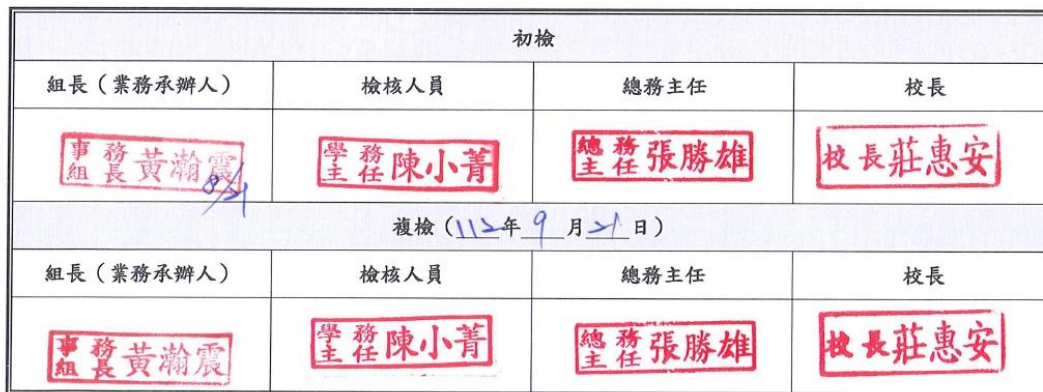 初檢
組長（業務承辦人） 檢核人員 總務主任 校長
事務組長黃瀚震 學務主任陳小菁 總務主任張勝雄 校長莊惠安
8/21
複檢（112年9月21日）
組長（業務承辦人） 檢核人員 總務主任 校長
事務組長黃瀚震 學務主任陳小菁 總務主任張勝雄 校長莊惠安